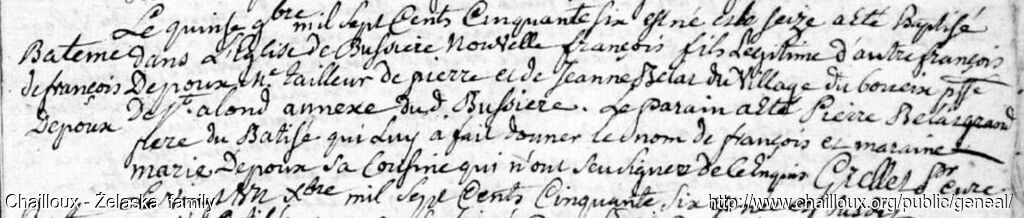 Le quinse 9bre mil sept Cents Cinquante six est né et le seize a eté Baptisé
Bateme dans L'Eglise de Bussiere Nouvelle françois fils Legitime d'autre françois
de françois Depoux Me tailleur de pierre et de Jeanne Belat du Village du boueix psse
Depoux De St alond annexe du d Bussiere. Le parain a eté Pierre Belat grand
frere du Batisé qui Luy a fait donner le nom de françois et maraine
marie Depoux sa Cousine qui n'ont seu signer de Ce Enquis Grellet Sr Cure.
Le vingt un Xbre mil sept Cents Cinquante six
Chailloux - Żelaska family
http://www.chailloux.org/public/geneal/